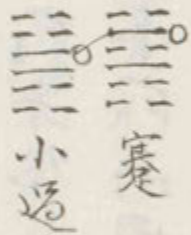 蹇
小過